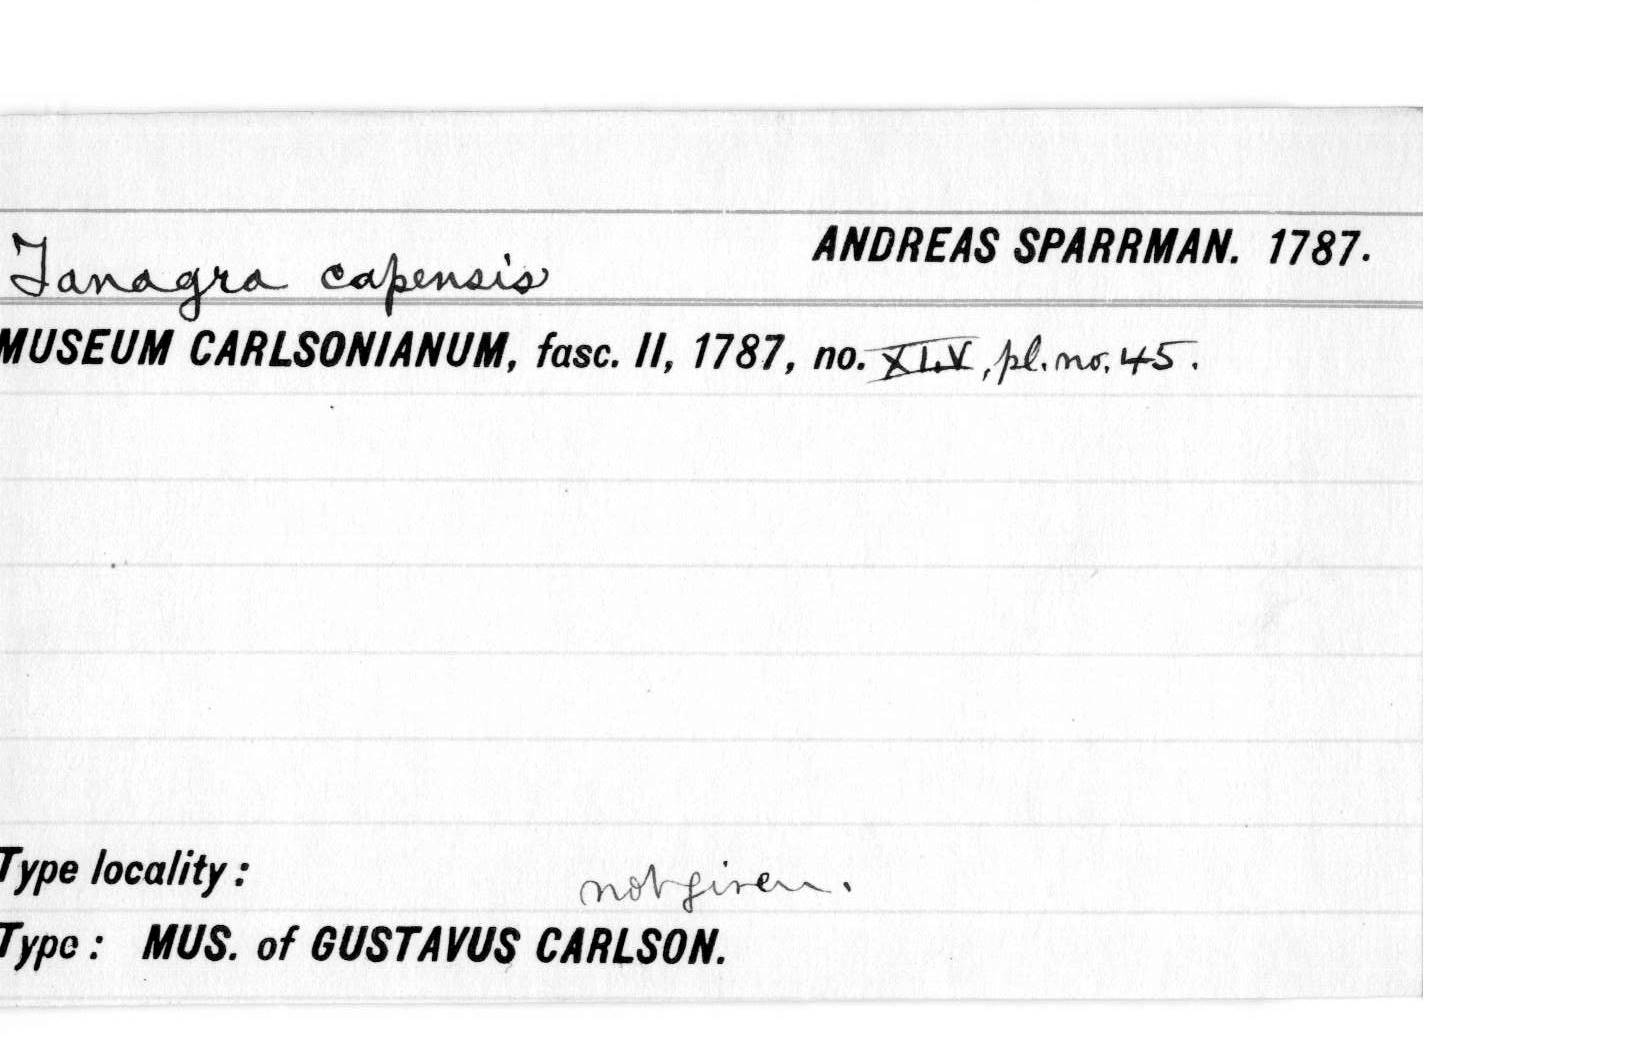 Tanagra capensis ANDREAS SPARRMAN. 1787.
MUSEUM CARLSONIANUM, fasc. II, 1787, no. XLV, pl. no. 45.
Type locality: not given.
Type: MUS. of GUSTAVUS CARLSON.